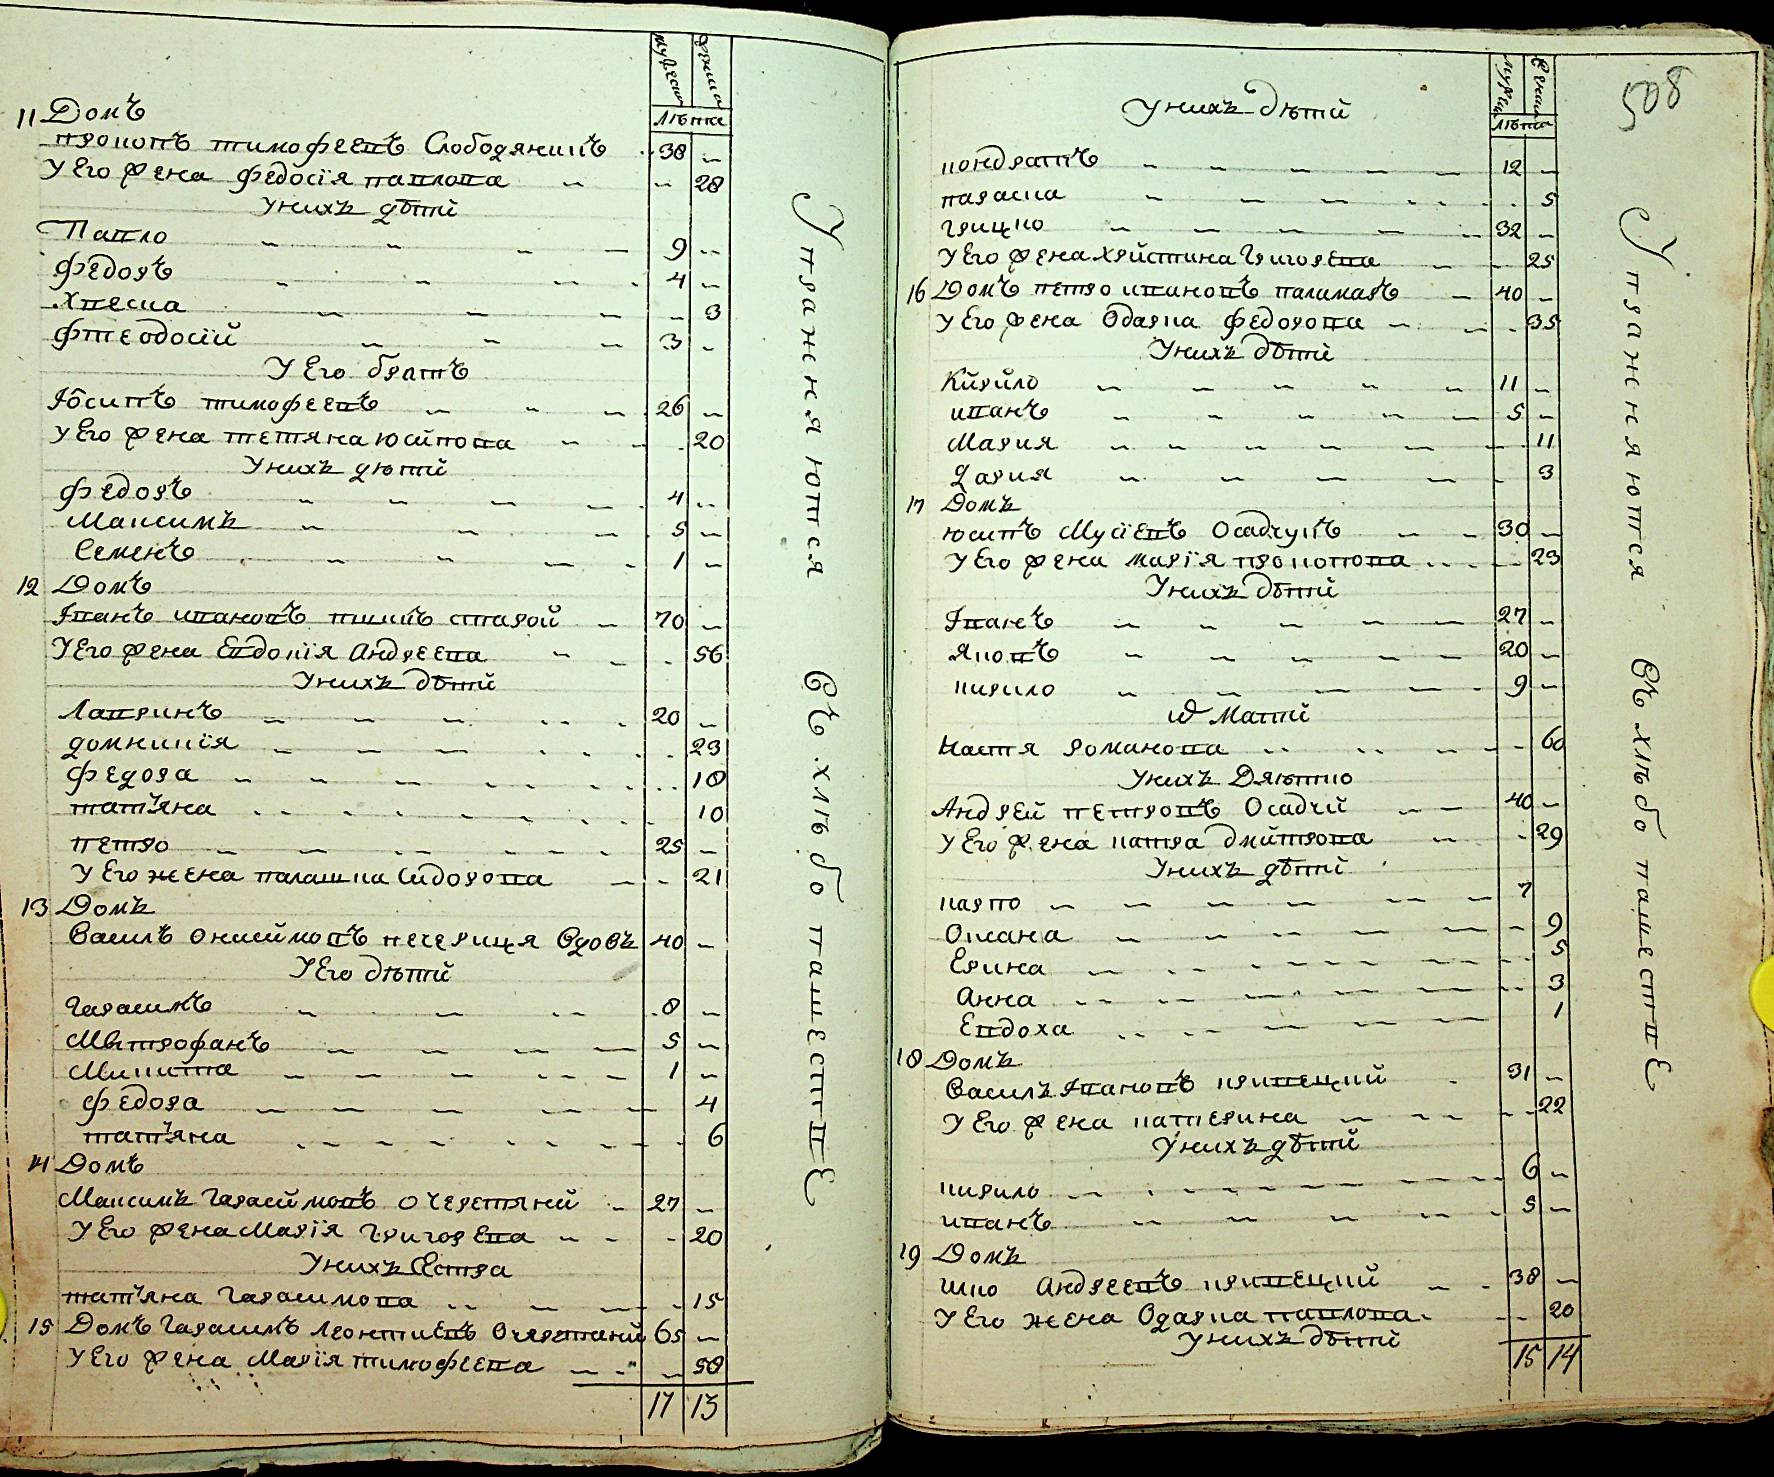 мужеска женска
лѣта
11 Домъ
прокопъ тимофеевъ Слободяникъ 38
у Его жена федосія павлова 28
у нихъ дѣти
Павло 9
федоръ 4
Хвеска 3
фтеодосій 3
у Его братъ
Іосипъ тимофеевъ 26
у Его жена тетяна юсипова 20
у нихъ дѣти
федоръ 4
Максимъ 5
Семенъ 1
12 Домъ
Іванъ ивановъ старой 70
у Его жена Евдокія Андреева 56
у нихъ дѣти
Лавринъ 20
домникія 23
федора 18
татъяна 10
петро 25
у Его жена палашка Сидорова 21
13 Домъ
Василъ Онисимовъ печериця вдовъ 40
у Его дѣти
гарасимъ 8
Митрофанъ 5
Микита 1
федора 4
татъяна 6
14 Домъ
Максимъ гарасимовъ Очеретяний 27
у Его жена Марія григорева 20
у нихъ сестра
татъяна гарасимова 15
15 Домъ гарасимъ леонтиевъ Очеретяний 65
у Его жена Марія тимофеева 58
17 13
Упражняются въ хлѣбопашестве
508
мужеска женска
лѣта
у нихъ дѣти
кондратъ 12
параска 5
грицко 32
у Его жена христина григорева 25
16 Домъ петро ивановъ паламаръ 40
у Его жена Одарка федорова 35
у нихъ дѣти
Кирило 11
иванъ 5
Мария 11
дария 3
17 Домъ
юсипъ Мусіевъ Осадчукъ 30
у Его жена марія прокопова 23
у нихъ дѣти
Іванъ 27
яковъ 20
кирило 9
и мати
Настя романова 60
Андрей петровъ Осадчій 40
у Его жена катра дмитрова 29
у нихъ дѣти
карпо 7
Оксана 9
Ерина 5
Анна 3
Евдоха 1
18 Домъ
Василъ Ивановъ кривецкий 31
у Его жена катерина 22
у нихъ дѣти
кирило 6
иванъ 5
19 Домъ
илко андреевъ кривецкий 38
у Его жена Одарка павлова 20
у нихъ дѣти
15 14
Упражняются въ хлѣбо пашестве